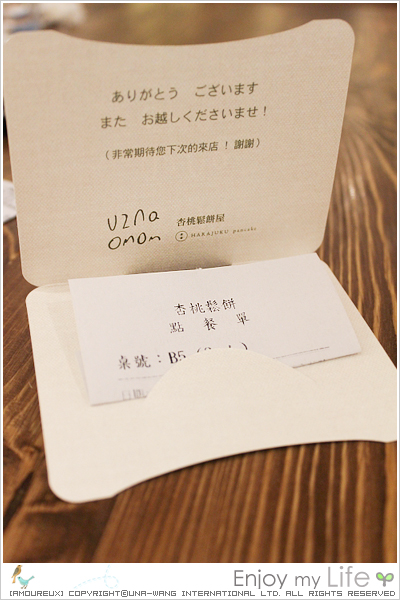 ありがとう　ございます
また　お越しくださいませ！
（非常期待您下次的來店！謝謝）
uzna
omom
杏桃鬆餅屋
HARAJUKU pancake
杏桃鬆餅
點 餐 單
桌號：B5
Enjoy my Life
[AMOUREUX] COPYRIGHT©UNA-WANG INTERNATIONAL LTD. ALL RIGHTS RESERVED